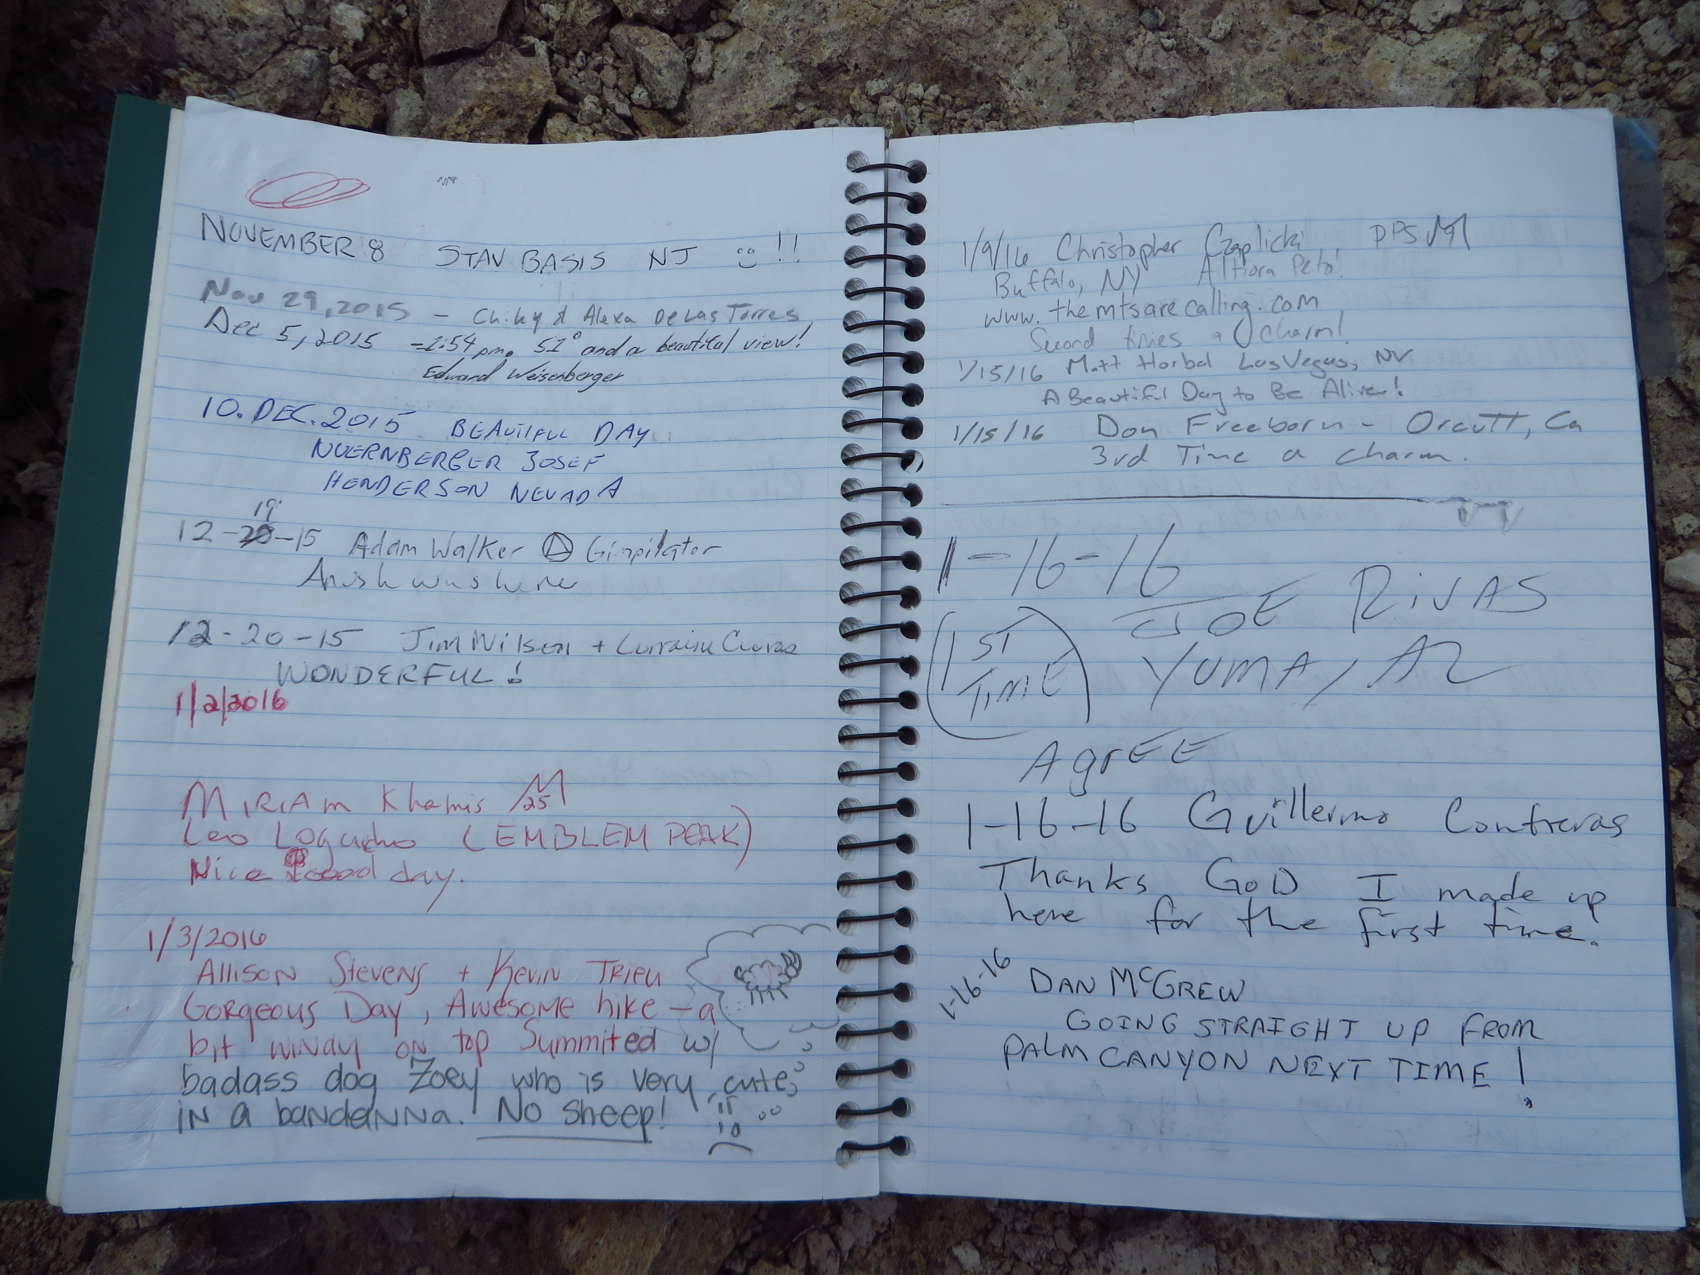 NOVEMBER 8 STAV BASIS NJ !!
Nov 29, 2015 - Chiky & Alexa De Las Torres
Dec 5, 2015 - 1:54 pm. 51° and a beautiful view!
Edward Weisenberger
10. DEC. 2015 BEAUTIFUL DAY
NUERNBERGER JOSEF
HENDERSON NEVADA
19
12-20-15 Adam Walker Gimpilator
Anish was here
12-20-15 Jim Wilson + Lorraine
WONDERFUL!
1/2/2016
MIRIAM Khamis 25
Leo Logacho (EMBLEM PEAK)
Nice Good day.
1/3/2016
Allison Stevens + Kevin Trieu
Gorgeous Day, Awesome hike - a
bit windy on top Summited w/
badass dog Zoey who is very cute,
in a bandanna. No sheep!
1/9/16 Christopher Czaplicki DPS
Buffalo, NY Altiora Peto!
www.themtsarecalling.com
Second tries a charm!
1/15/16 Matt Horbal Las Vegas, NV
A Beautiful Day to Be Alive!
1/15/16 Don Freeborn - Orcutt, Ca
3rd Time a charm.
1-16-16
JOE RIVAS
1ST
TIME
YUMA, AZ
AgrEE
1-16-16 Guillermo Contreras
Thanks GOD I made up
here for the first time.
1-16-16 DAN McGREW
GOING STRAIGHT UP FROM
PALM CANYON NEXT TIME!